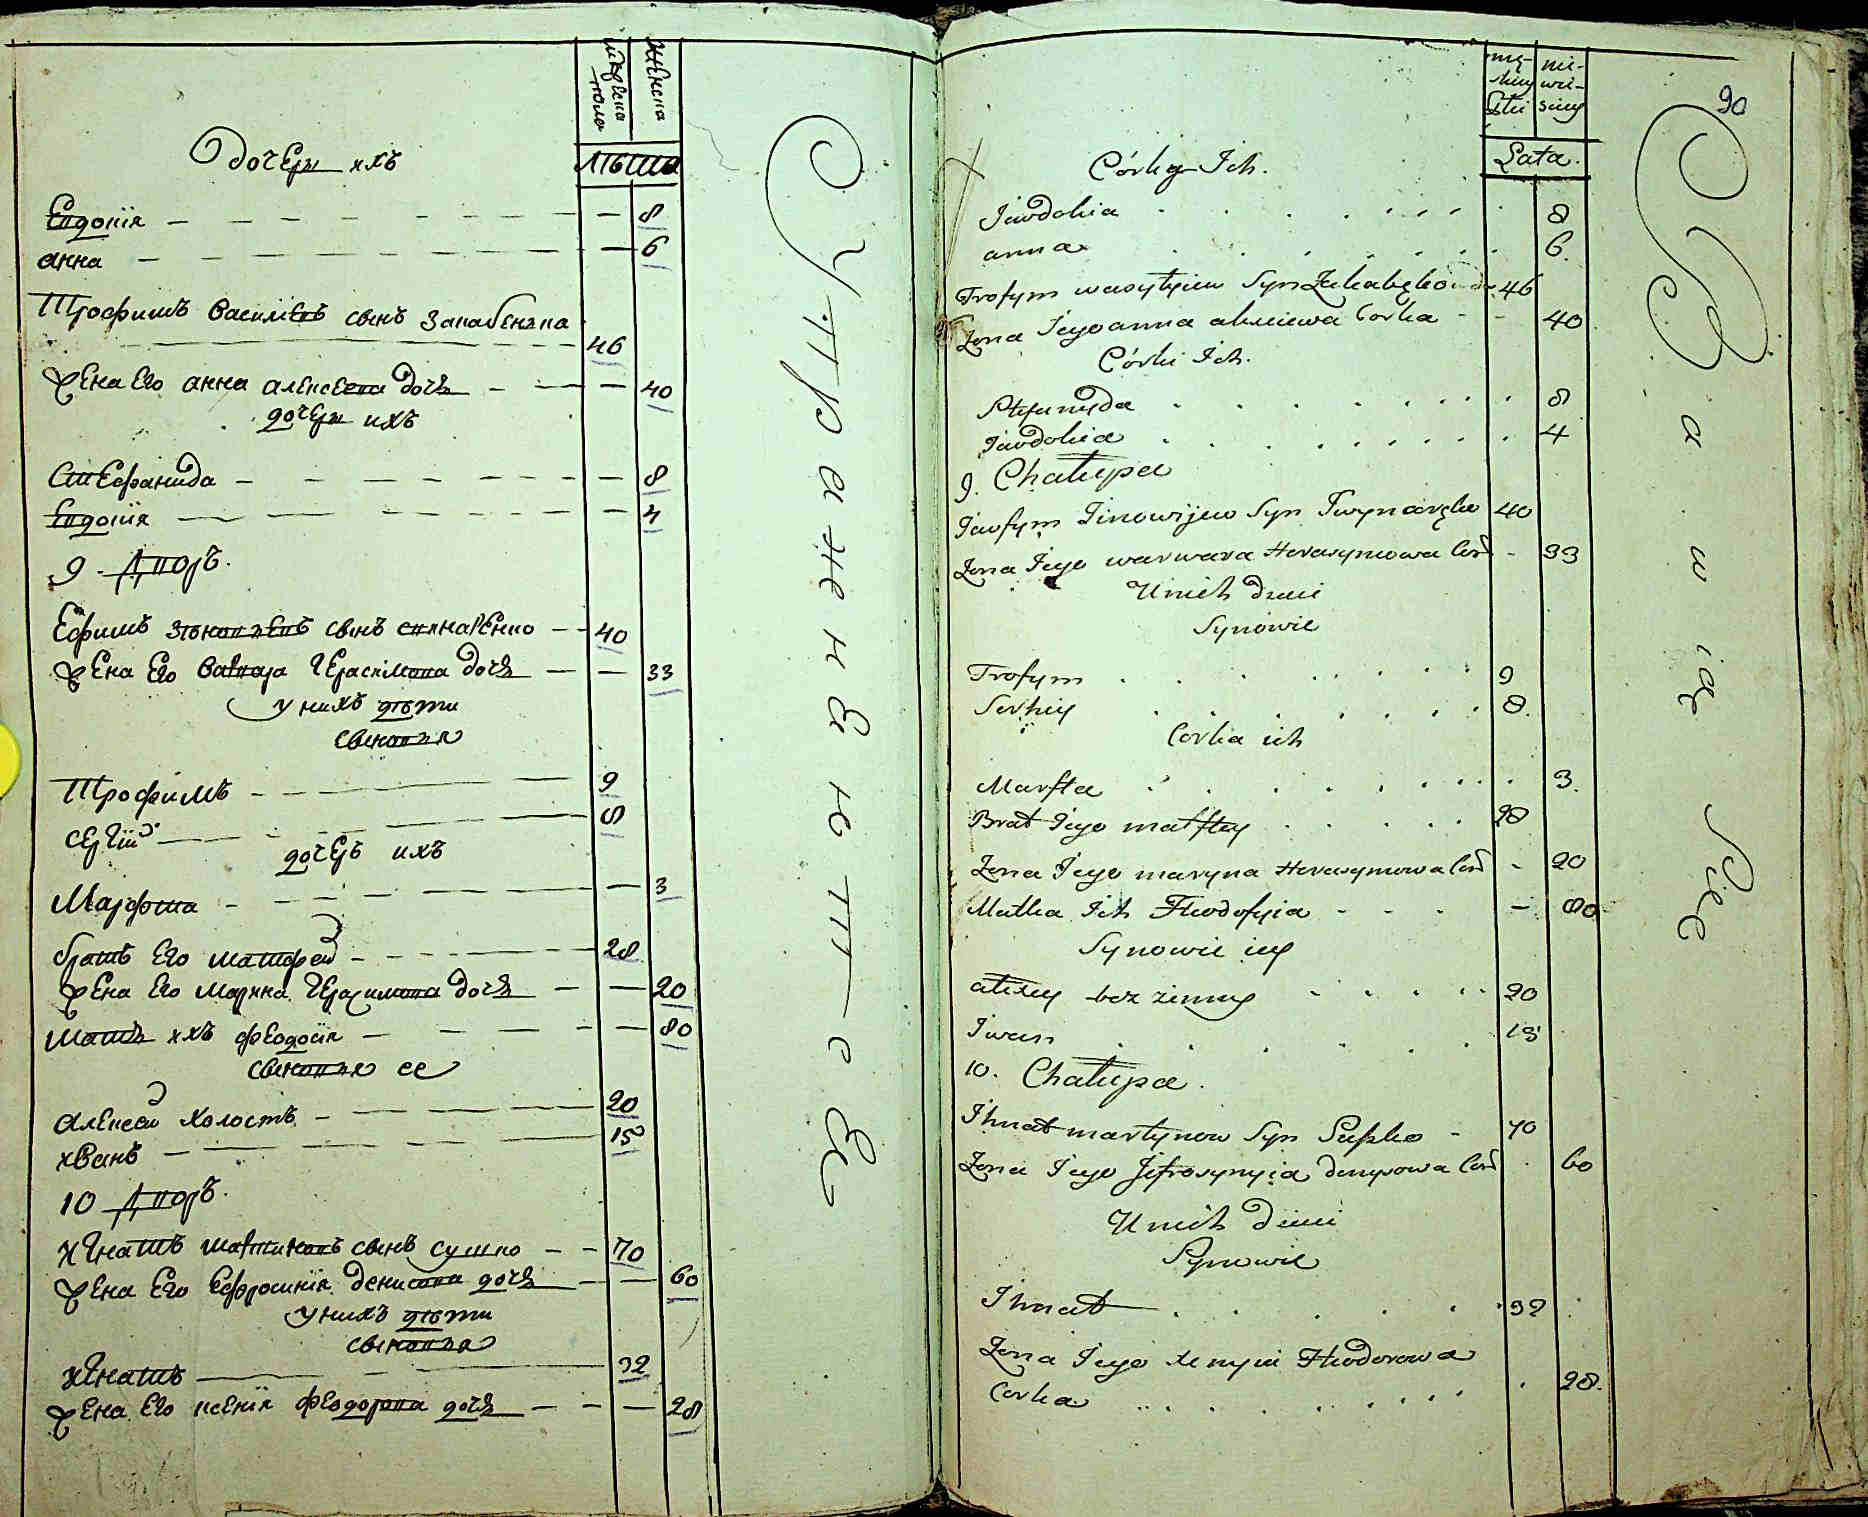 мужеска пола
женска
лѣта
дочеры ихъ
Евдокія 8
анна 6
Трофимъ Василіевъ сынъ
46
жена его анна алексеева дочь 40
дочеры ихъ
Стефанида 8
Евдокія 4
9 Дворъ.
Ефимъ сынъ 40
жена его Варвара Герасимова дочь 33
у нихъ дѣти
сыновья
Трофимъ 9
Сергій 8
дочерь ихъ
Марфта 3
братъ его матфей 28
жена его Марина Герасимова дочь 20
мать ихъ феодосія 80
сыновья ее
алексей холостъ 20
иванъ 15
10 Дворъ.
игнатъ мартиновъ сынъ сушко 70
жена его Ефросинія денисова дочь 60
у нихъ дѣти
сыновья
игнатъ 32
жена его ксенія феодорова дочь 28
90
Lata.
Córky Ich.
Jewdokia 8
anna 6
Trofym wasylyiew Syn 46
Żona Jego anna alexiewa Corka 40
Córki Ich.
Stefanyda 8
Jewdokia 4
9. Chałupa
Jewfym Syn 40
Żona Jego warwara Herasymowa Cor 33
U nich dzieci
Synowie
Trofym 9
Serhiy 8.
Corka ich
Marfta 3.
Brat Jego matftey 28
Żona Jego maryna Herasymowa Cor 20
Matka Ich Fteodosyia 80
Synowie iey
alexey bez żenny 20
Iwan 15
10. Chałupa.
Ihnat martynow Syn Suszko 70
Żona Jego Jefrosynyia denysowa Cor 60
U nich dzieci
Synowie
Ihnat 32
Żona Jego xenyia Fteodorowa
Corka 28.